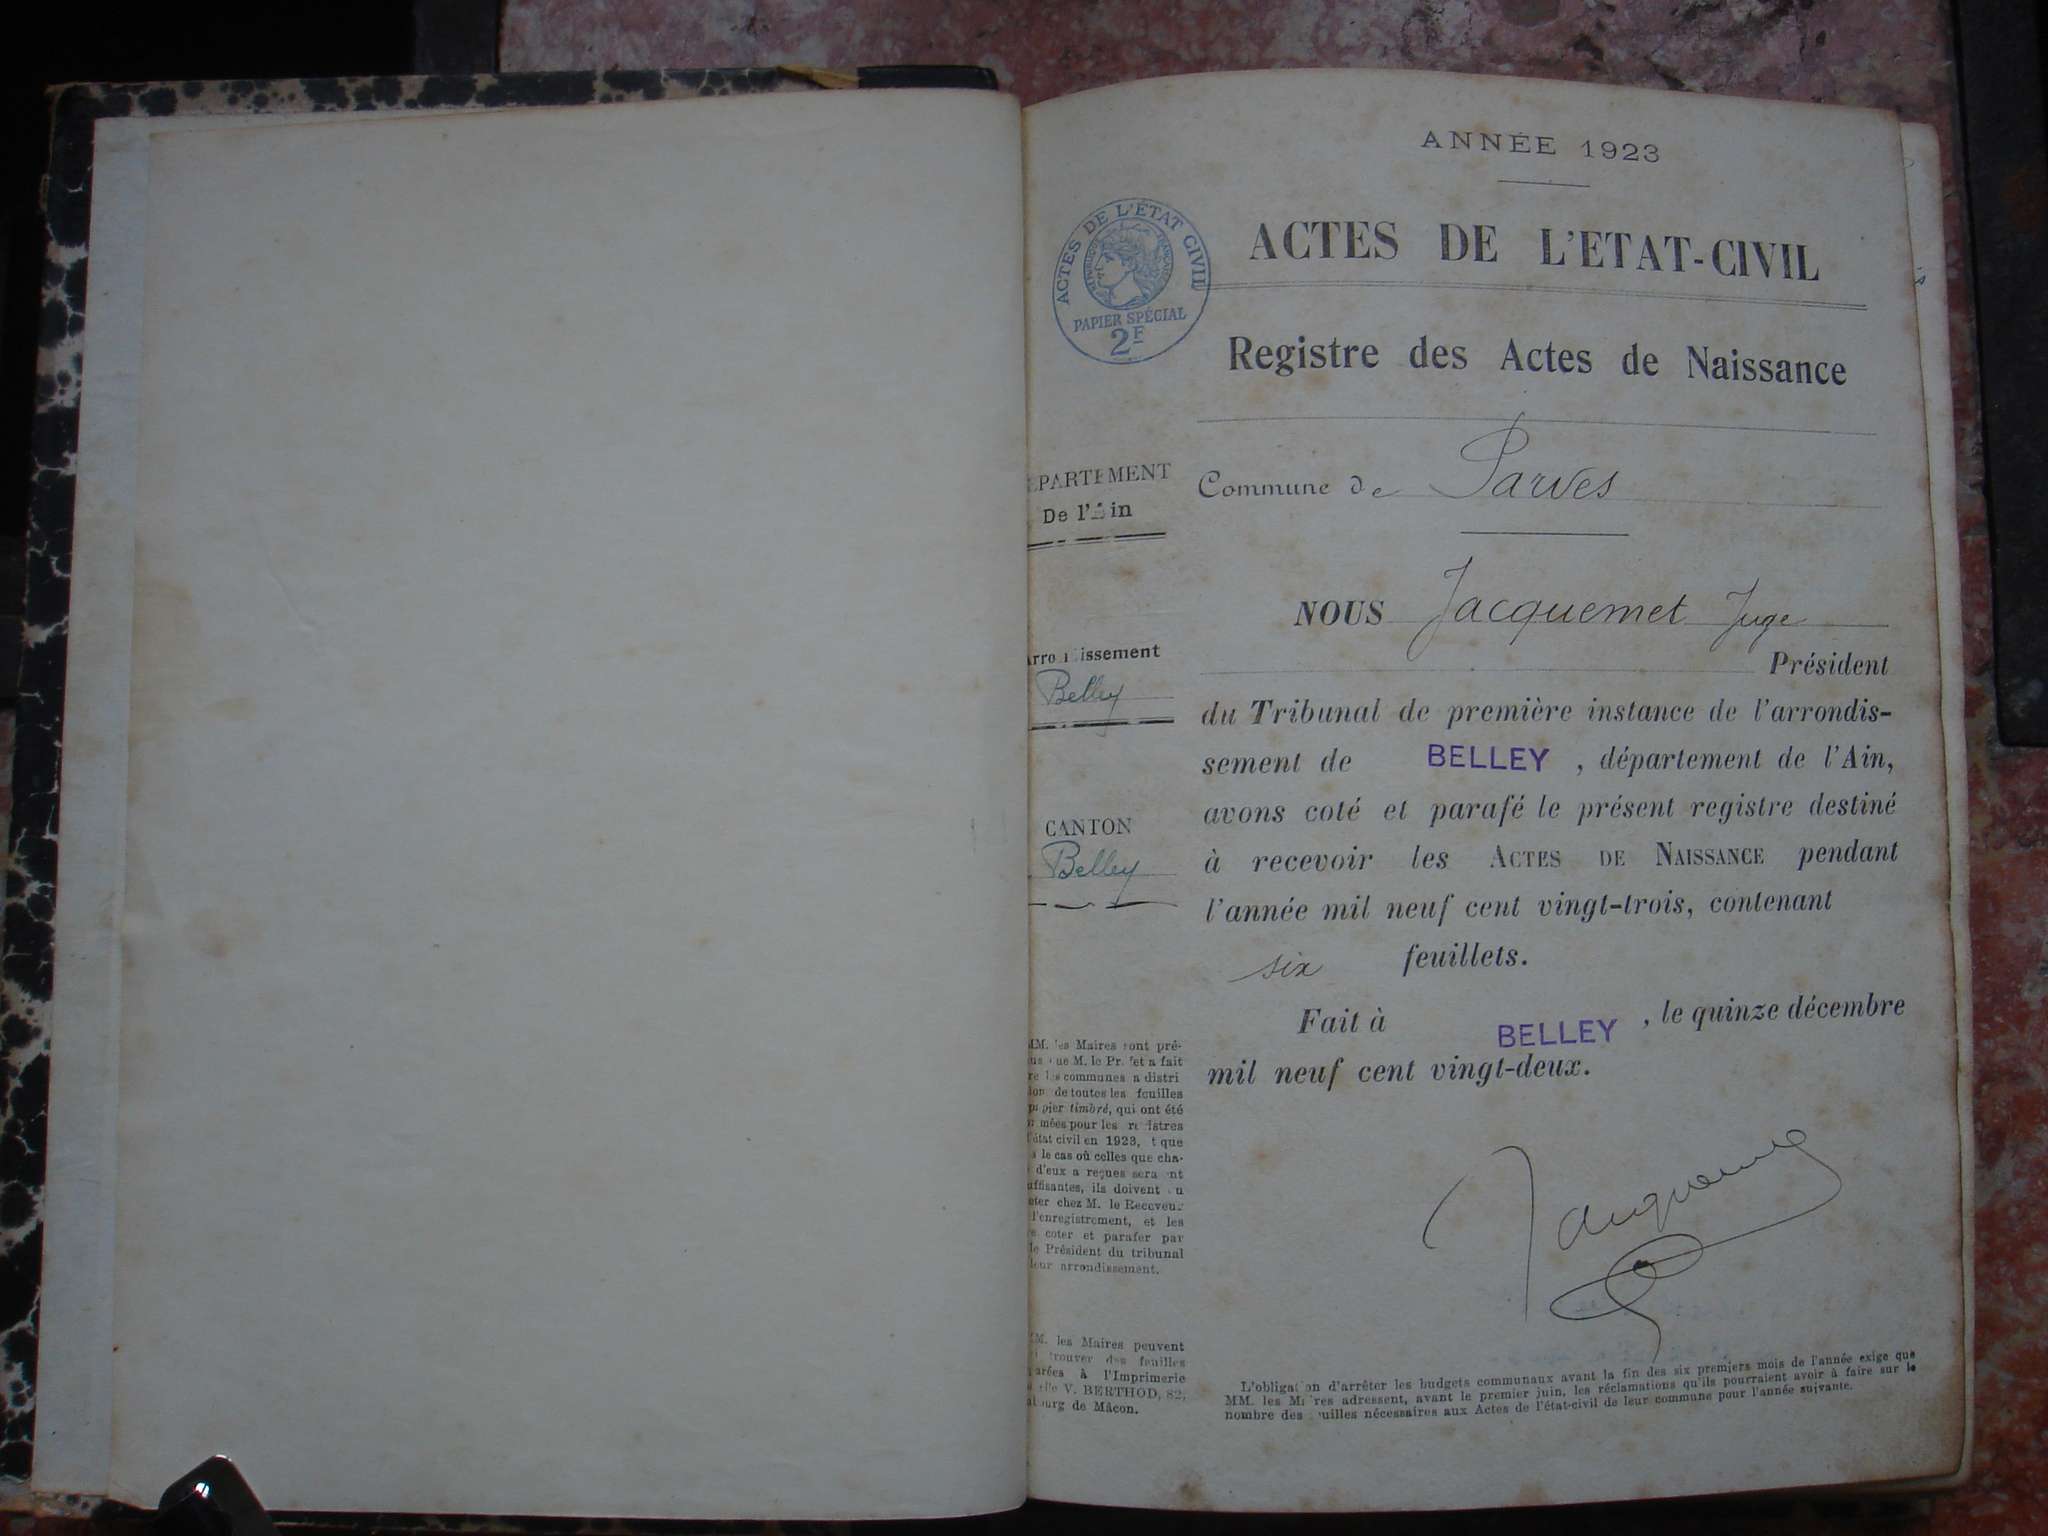 ANNÉE 1923
ACTES DE L'ÉTAT CIVIL
RÉPUBLIQUE FRANÇAISE
PAPIER SPÉCIAL
2F
ACTES DE L'ETAT-CIVIL
Registre des Actes de Naissance
EPARTEMENT
De l'Ain
Commune de Parves
NOUS Jacquemet Juge
Président
du Tribunal de première instance de l'arrondis-
sement de BELLEY, département de l'Ain,
avons coté et parafé le présent registre destiné
à recevoir les ACTES DE NAISSANCE pendant
l'année mil neuf cent vingt-trois, contenant
six feuillets.
Fait à BELLEY, le quinze décembre
mil neuf cent vingt-deux.
Jacquemet
Arrondissement
Belley
CANTON
Belley
MM. les Maires sont pré-
que M. le Préfet a fait
les communes a distri
de toutes les feuilles
papier timbré, qui ont été
mées pour les registres
l'état civil en 1923, et que
le cas où celles que cha-
d'eux a reçues seraient
uffisantes, ils doivent
eter chez M. le Receveur
l'enregistrement, et les
coter et parafer par
le Président du tribunal
leur arrondissement.
MM. les Maires peuvent
trouver des feuilles
parées à l'Imprimerie
V. BERTHOD, 82,
bourg de Mâcon.
L'obligation d'arrêter les budgets communaux avant la fin des six premiers mois de l'année exige que
MM. les Maires adressent, avant le premier juin, les réclamations qu'ils pourraient avoir à faire sur le
nombre des feuilles nécessaires aux Actes de l'état-civil de leur commune pour l'année suivante.